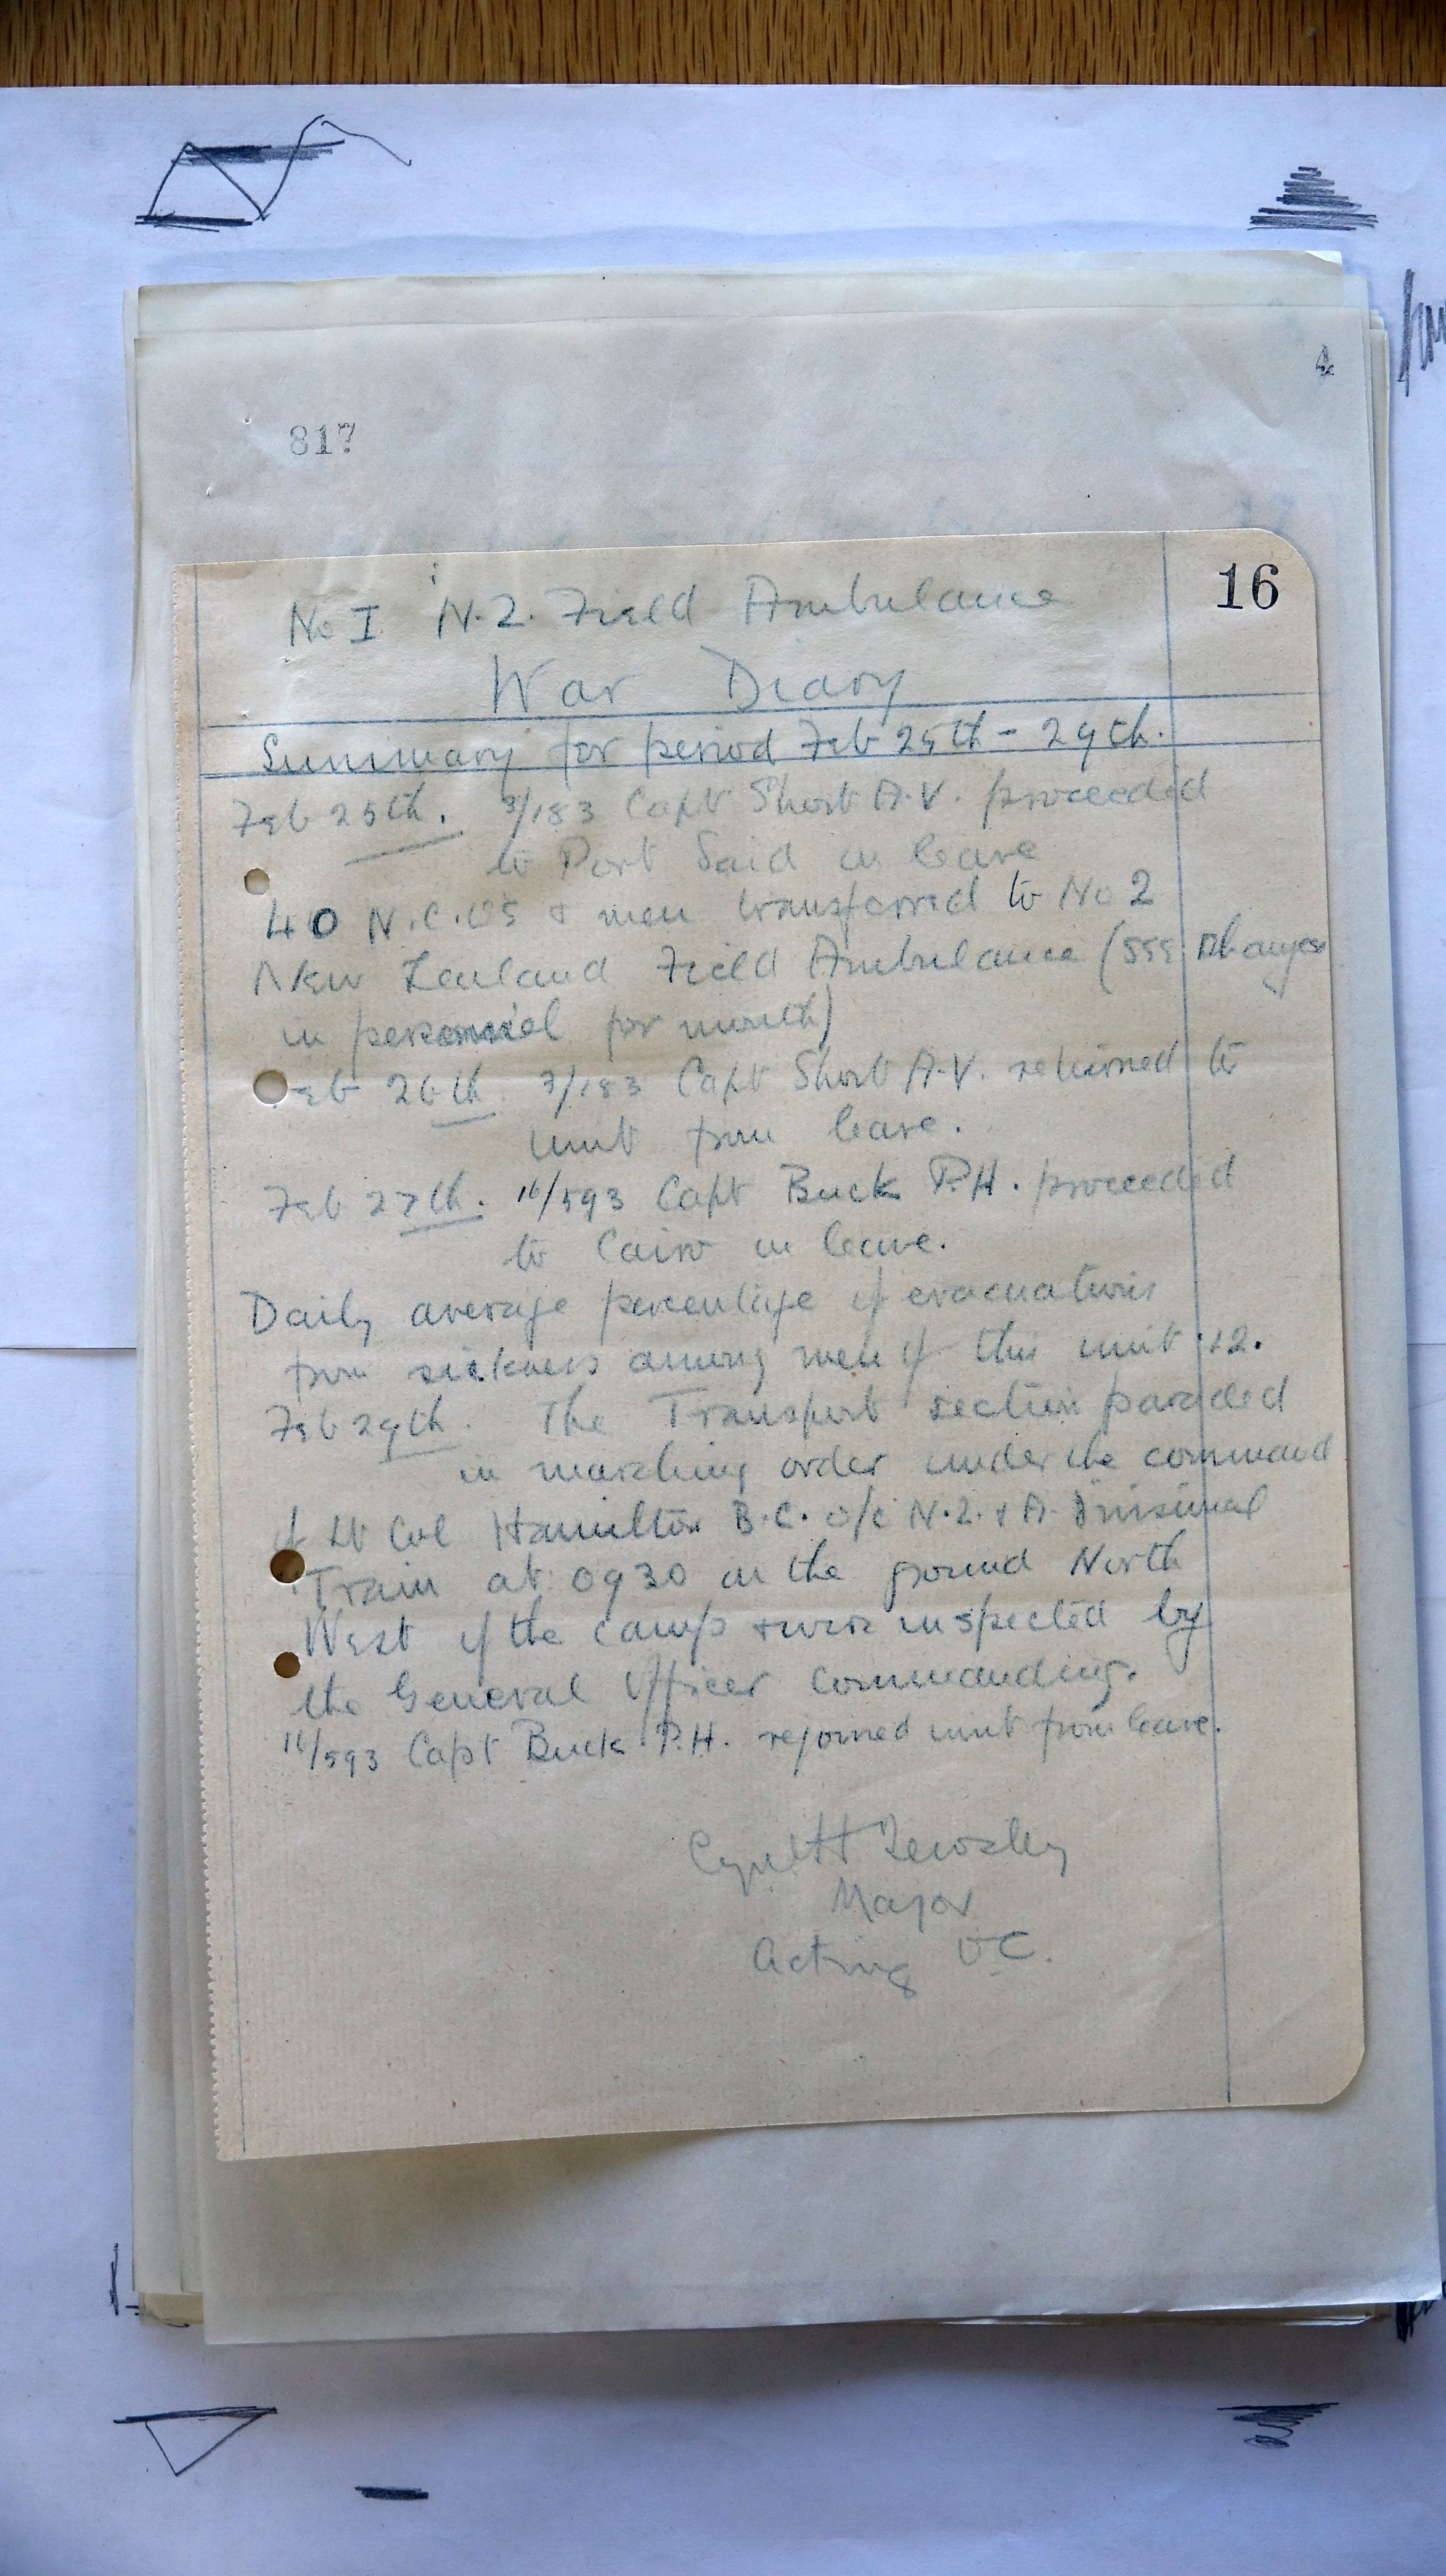 4
817
16
No I N.Z. Field Ambulance
War Diary
Summary for period Feb 25th - 29th.
Feb 25th. 3/183 Capt Short A.V. proceeded
to Port Said on leave
40 N.C.O's & men transferred to No 2
New Zealand Field Ambulance (see changes
in personnel for month)
Feb 26th 3/183 Capt Short A.V. returned to
unit from leave.
Feb 27th. 16/593 Capt Buck P.H. proceeded
to Cairo on leave.
Daily average percentage of evacuations
from sickness among men of this unit .12.
Feb 29th. The Transport section paraded
in marching order under the command
of Lt Col Hamilton B.C. o/c N.Z. & A. Divisional
Train at 0930 on the ground North
West of the camp & were inspected by
the General Officer Commanding.
16/593 Capt Buck P.H. rejoined unit from leave.
Major
Acting OC.